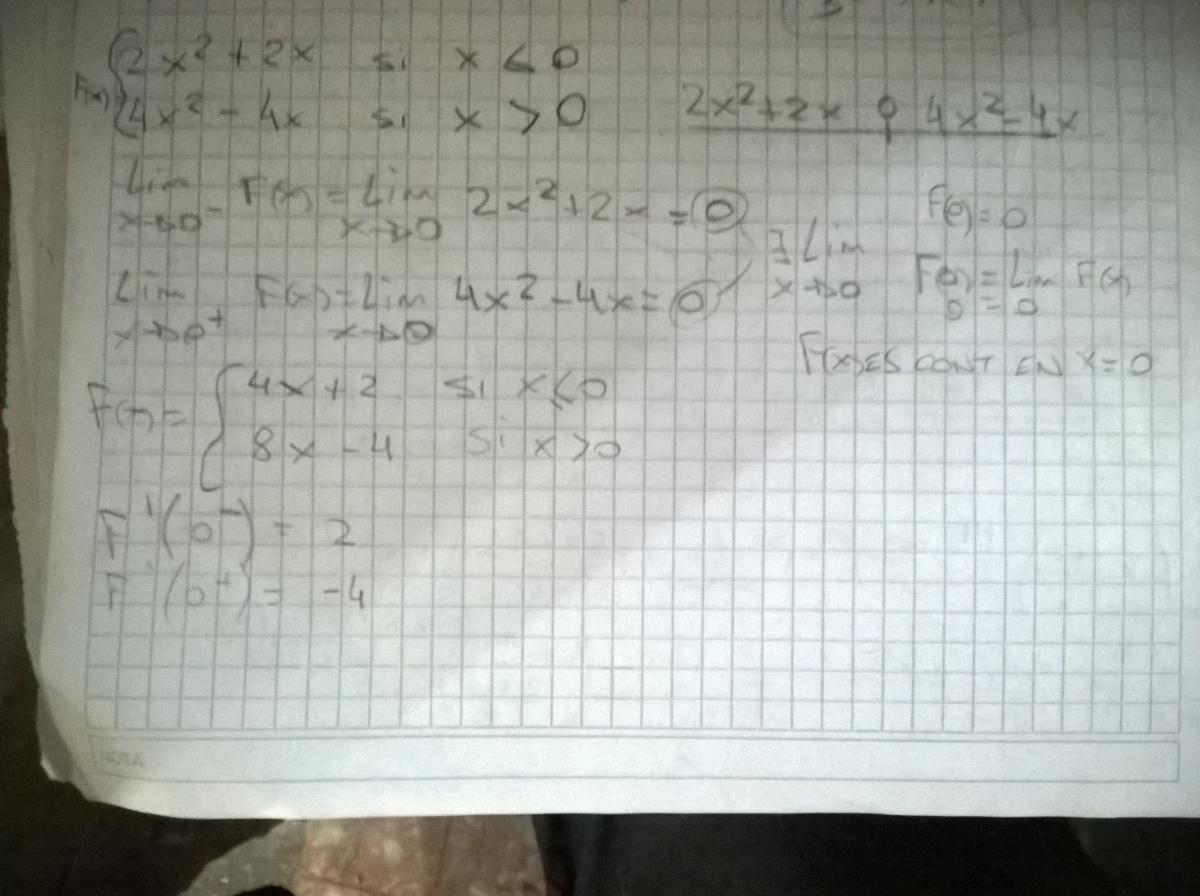 F(x) { 2x² + 2x si x < 0
4x² - 4x si x > 0
2x²+2x 0 4x²-4x
Lim x→0⁻ F(x) = Lim x→0 2x²+2x = 0
Lim x→0⁺ F(x) = Lim x→0 4x²-4x = 0
∃ Lim x→0
F(0) = 0
F(0) = Lim F(x)
0 = 0
F(x) ES CONT EN x = 0
F(x) = { 4x+2 si x<0
8x-4 si x>0
F'(0⁻) = 2
F'(0⁺) = -4
NOTA